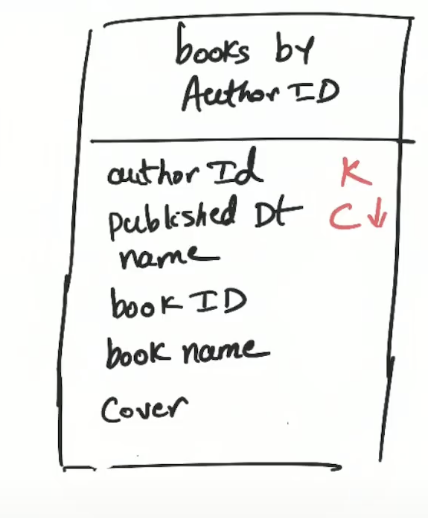 books by
Author ID
author Id K
published Dt C↓
name
book ID
book name
Cover